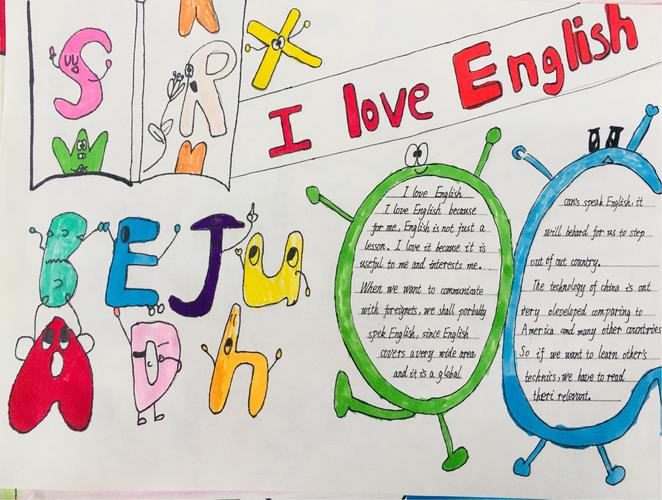 I love English
S
R
X
W
B E J u
A D h
I love English
I love English because
for me, English is not just a
lesson. I love it because it is
useful to me and interests me.
When we want to communicate
with foreigners, we shall porbably
spek English, since English
covers a very wide area
and it is a global
can's speak English, it
will behard for us to step
out of out country.
The technology of china is ont
very oleveloped comparing to
America and many other countries
So if we want to learn other's
technics, we have to read
theri relevant.